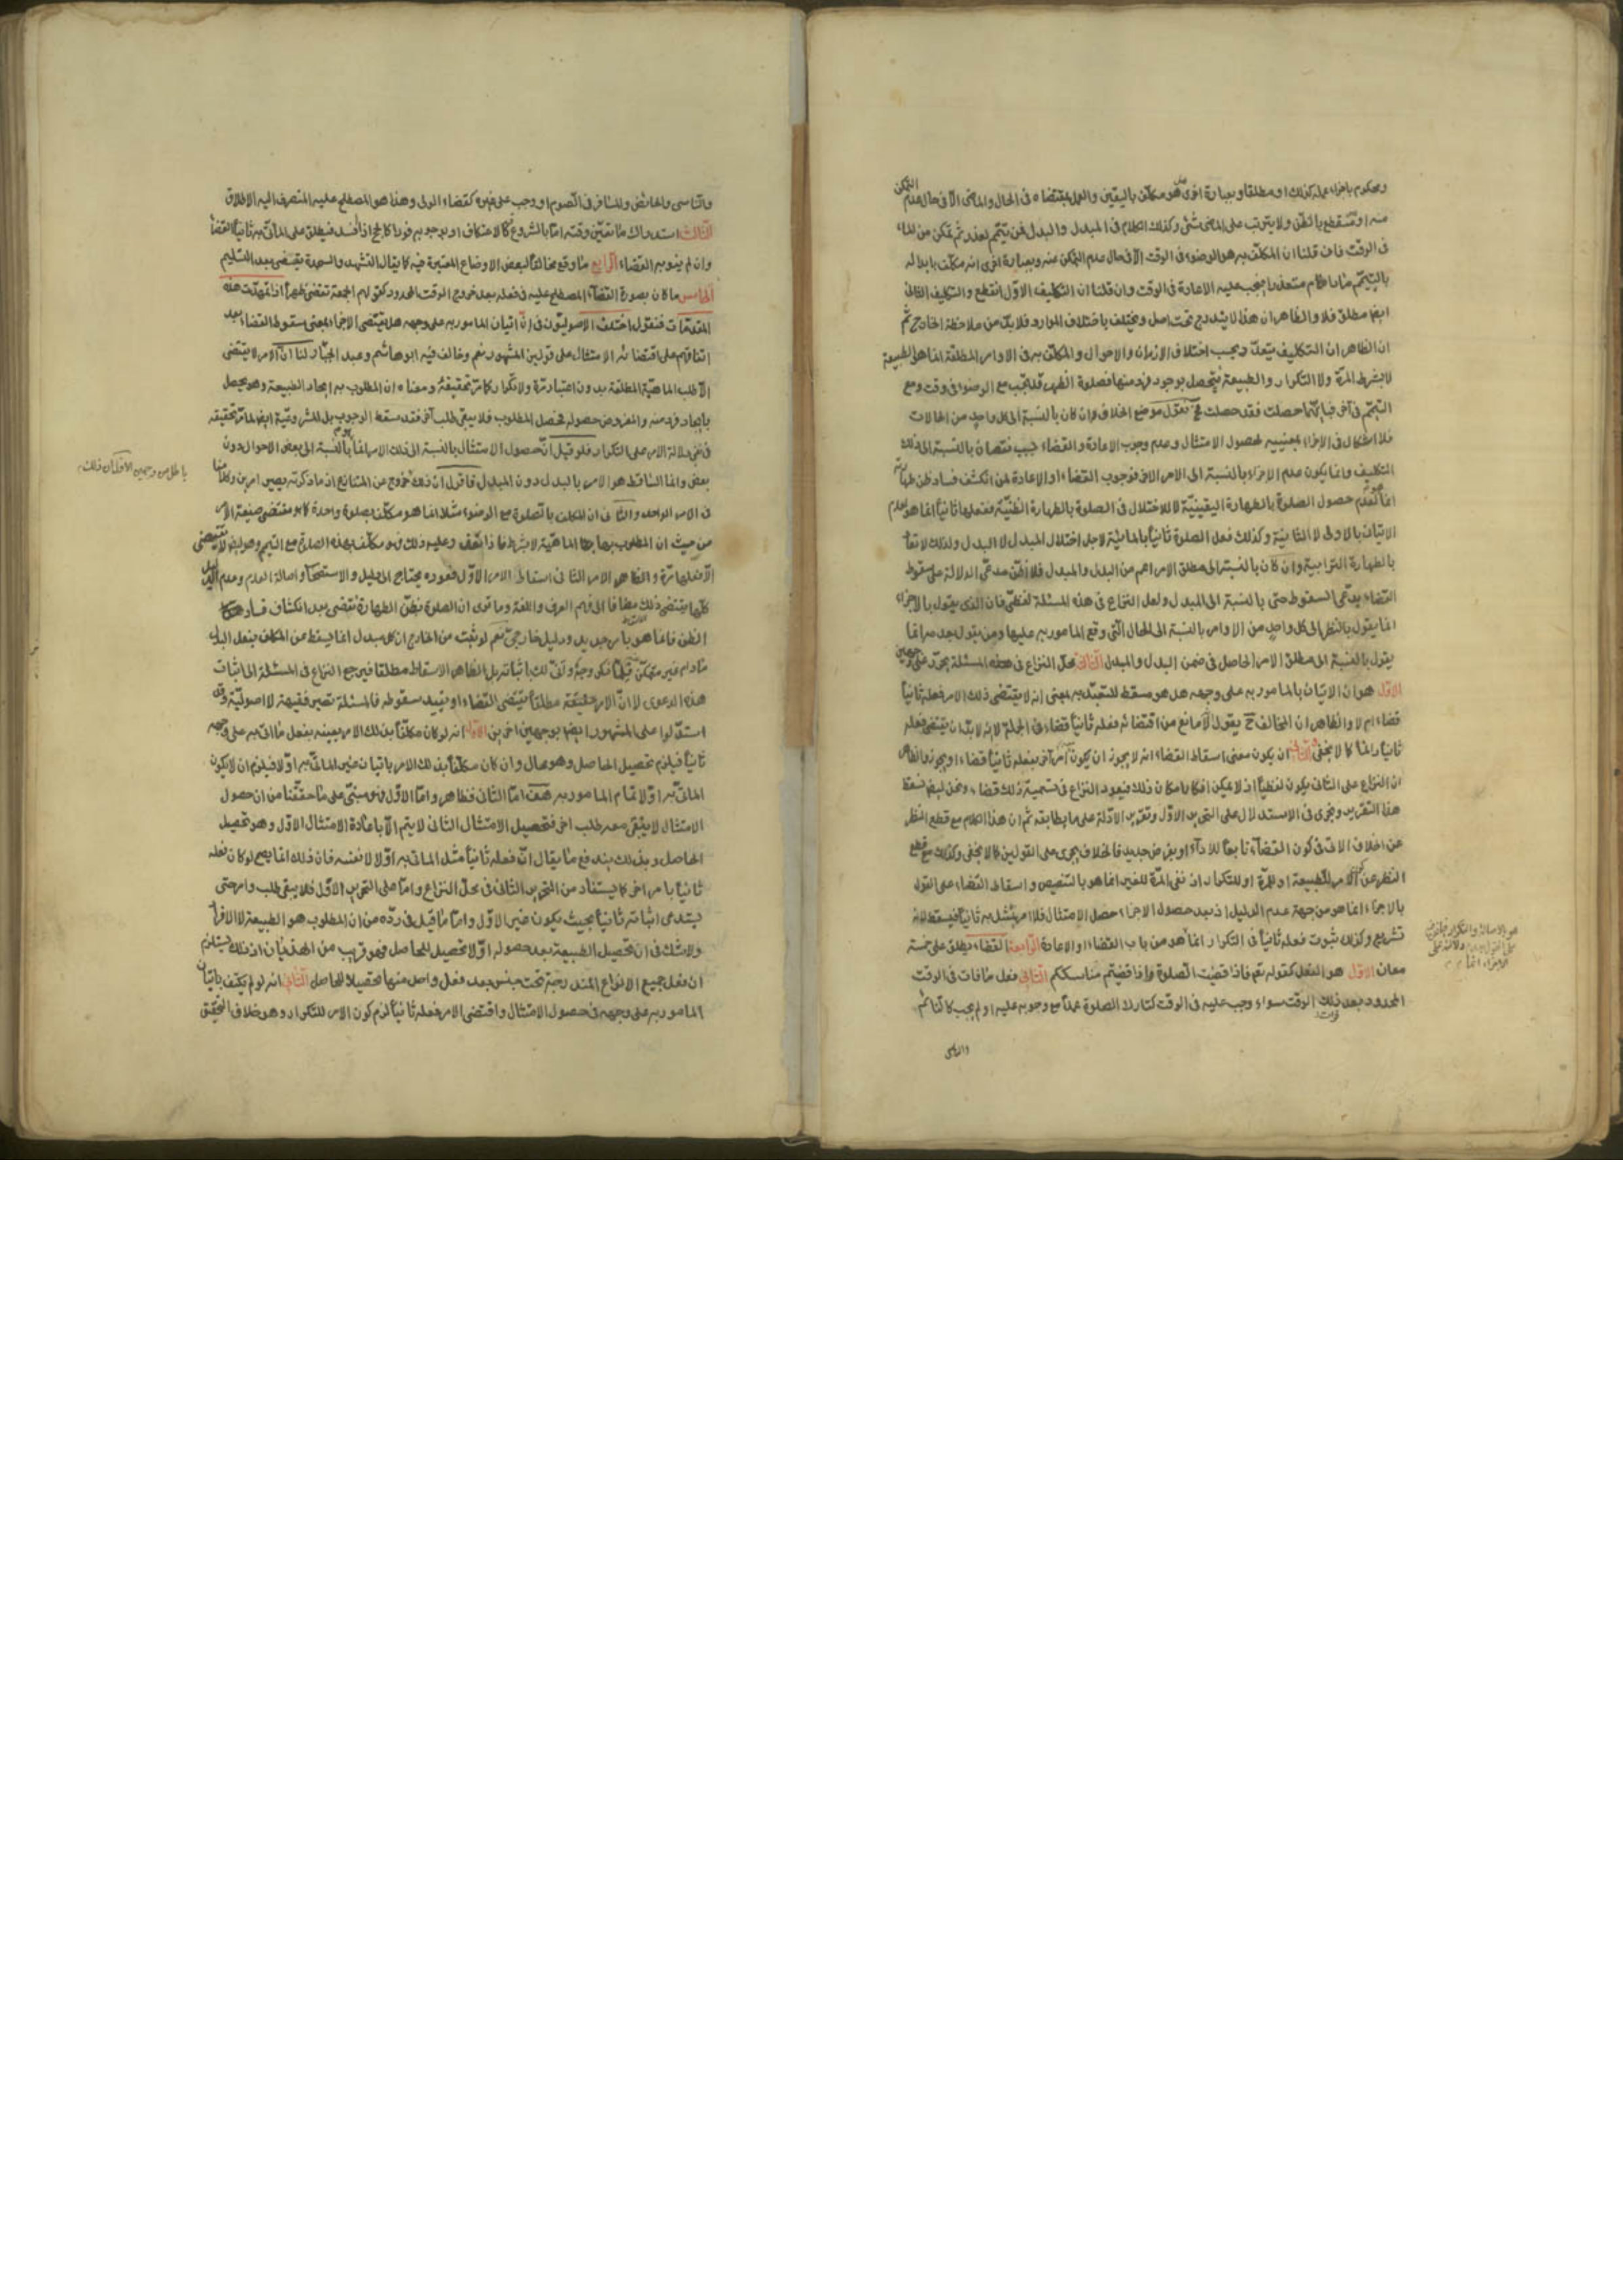 ومحكوم باجزاء عمله كذلك او مطلقا وبعبارة اخرى هو مكلف باليقين والعمل بمقتضاه فى الحال والماضى الا فى حال عدم التمكن
منه او ينقطع بالظن ولا يترتب على الماضى شئ وكذلك الكلام فى المبدل والبدل فمن يتيمم لعذر ثم تمكن من الماء
فى الوقت فان قلنا ان المكلف به هو الوضوء فى الوقت الا فى حال عدم التمكن منه وبعبارة اخرى انه مكلف بابداله
بالتيمم مادام متعذرا فيجب عليه الاعادة فى الوقت وان قلنا ان التكليف الاول انقطع والتكليف الثانى
ايضا مطلق فلا والظاهر ان هذا لا يندرج تحت اصل ويختلف باختلاف الموارد فلابد من ملاحظة الخارج ثم
ان الظاهر ان التكليف يتعدد بحسب اختلاف الازمان والاحوال والمكلف به فى الاوامر المطلقة انما هو الطبيعة
لا بشرط المرة ولا التكرار والطبيعة تتحصل بوجود فرد منها فصلوة الظهر قد تجب مع الوضوء فى وقت ومع
التيمم فى آخر فبايهما حصلت فقد حصلت فح نقول موضع الخلاف ان كان بالنسبة الى كل واحد من الحالات
فلا اشكال فى الاجزاء بمعنييه لحصول الامتثال وعدم وجوب الاعادة والقضاء بالنسبة الى ذلك
التكليف وانما يكون عدم الاجزاء بالنسبة الى الامر الاخر فوجوب القضاء او الاعادة لمن انكشف فساد ظن طهارته
انما هو لعدم حصول الصلوة بالطهارة اليقينية لا لاختلال فى الصلوة بالطهارة الظنية ففعلها ثانيا انما هو لعدم
الاتيان بالاولى لا الثانية وكذلك فعل الصلوة ثانيا بالمائية لاجل اختلال المبدل لا البدل
بالطهارة الترابية وان كان بالنسبة الى مطلق الامر اعم من البدل والمبدل فلا اظن مدعى الدلالة على سقوط
القضاء يدعى السقوط حتى بالنسبة الى المبدل ولعل النزاع فى هذه المسئلة لفظى فان الذى يقول بالاجزاء
انما يقول بالنظر الى كل واحد من الاوامر بالنسبة الى الحال التى وقع المامور به عليها ومن يقول بعدمه انما
يقول بالنسبة الى مطلق الامر الحاصل فى ضمن البدل والمبدل الثالث محل النزاع فى هذه المسئلة يحرر على وجهين
الاول هو ان الاتيان بالمامور به على وجهه هل هو مسقط للتعبد به بمعنى انه لا يقتضى ذلك الامر فعله ثانيا
قضاء ام لا والظاهر ان المخالف ح يقول لا مانع من اقتضائه فعله ثانيا قضاء فى الجملة لا انه لابد ان يقتضى فعله
ثانيا دائما كما لا يخفى الثانى ان يكون معنى اسقاط القضاء انه لا يجوز ان يكون امر آخر بفعله ثانيا قضاء او يجوز والظاهر
ان النزاع على الثانى يكون لفظيا اذ لا يمكن انكار امكان ذلك فيعود النزاع فى تسميته ذلك قضاء ونحن
هذا التقرير ونجرى فى الاستدلال على التحرير الاول وتقرير الادلة على ما يطابقه ثم ان هذا الكلام مع قطع النظر
عن الخلاف الاتى فى كون القضاء تابعا للاداء او بفرض جديد فالخلاف يجرى على القولين كما لا يخفى وكذلك مع قطع
النظر عن كون الامر للطبيعة او للمرة او للتكرار اذ نفى المرة للغير انما هو بالتنصيص واسقاط القضاء على القول
بالاجزاء انما هو من جهة عدم الدليل اذ بعد حصول الاجزاء حصل الامتثال فلا امر يمتثل به ثانيا فيسقط لانه
تشريع وكذلك ثبوت فعله ثانيا فى التكرار انما هو من باب القضاء والاعادة الرابعة القضاء يطلق على خمسة
معان الاول هو الفعل كقوله تعم فاذا قضيت الصلوة فاذا قضيتم مناسككم الثانى فعل ما فات فى الوقت
المحدود بعد ذلك الوقت سواء وجب عليه فى الوقت كتارك الصلوة عمدا مع وجوبه عليه او لم يجب كالنائم
والناسى
هو بالاصالة والتكرار
والناسى والحائض والمسافر فى الصوم او وجب على غيره كقضاء الولى وهذا هو المصطلح عليه المنصرف اليه الاطلاق
الثالث استدراك ما تعين وقته اما بالشروع فيه كالاعتكاف او بوجوبه فورا كالحج اذا افسد فيطلق على الماتى به ثانيا القضاء
وان لم ينو به القضاء الرابع ما وقع مخالفا لبعض الاوضاع المعتبرة فيه كما يقال التشهد والسجدة يقضى بعد التسليم
الخامس ما كان بصورة القضاء المصطلح عليه فى فعله بعد خروج الوقت المحدود كقولهم الجمعة تقضى ظهرا اذا تمهدت هذه
المقدمات فنقول اختلف الاصوليون فى ان اتيان المامور به على وجهه هل يقتضى الاجزاء بمعنى سقوط القضاء بعد
اتفاقهم على اقتضائه الامتثال على قولين المشهور نعم وخالف فيه ابو هاشم وعبد الجبار لنا ان الامر لا يقتضى
الا طلب الماهية المطلقة بدون اعتبار مرة ولا تكرار كما مر تحقيقه ومعناه ان المطلوب به ايجاد الطبيعة وهو يحصل
بايجاد فرد منه والمفروض حصوله فحصل المطلوب فلا يبقى طلب آخر فقد سقط الوجوب بل المشروعية ايضا لما مر تحقيقه
فى نفى دلالة الامر على التكرار فلو قيل ان حصول الامتثال بالنسبة الى ذلك الامر بالنسبة الى بعض الاحوال دون
بعض وانما الساقط هو الامر بالبدل دون المبدل فاقول ان ذلك خروج عن المتنازع اذ ما ذكرته يصير امرين وكلامنا
فى الامر الواحد والثانى ان المكلف بالصلوة مع الوضوء مثلا انما هو مكلف بصلوة واحدة كما هو مقتضى صيغة الامر
باطل من وجهين الاول ان ذلك
من حيث ان المطلوب بها ماهية لا بشرط فاذا تعذر عليه ذلك فهو مكلف بهذه الصلوة مع التيمم وهو ايضا لا يقتضى
الا فعلها مرة والظاهر ان الامر الثانى اسقط الامر الاول فعوده يحتاج الى دليل والاستصحاب واصالة العدم وعدم الدليل
كلها يقتضى ذلك مضافا الى فهم العرف واللغة وما ترى ان الصلوة بظن الطهارة تقضى بعد انكشاف فساد
الظن فانما هو بامر جديد ودليل خارجى نعم لو ثبت من الخارج ان كل مبدل انما يسقط عن المكلف بفعل البدل
مادام غير متمكن فلما ذكره وجه وانى لك باثباته بل الظاهر الاسقاط مطلقا فيرجع النزاع فى المسئلة الى اثبات
هذه الدعوى لا ان الامر مطلقا يقتضى القضاء او يفيد سقوطه فالمسئلة تصير فقهية لا اصولية وقد
استدلوا على المشهور ايضا بوجهين اخرين الاول انه لو كان مكلفا بذلك الامر بعينه بفعل ما اتى به على وجهه
ثانيا فيلزم تحصيل الحاصل وهو محال وان كان مكلفا بذلك الامر باتيان غير الماتى به اولا فيلزم ان لا يكون
الماتى به اولا تمام المامور به هف اما الثانى فظاهر واما الاول فهو مبنى على ما حققنا من ان حصول
الامتثال لا يبقى معه طلب اخر فتحصيل الامتثال الثانى لا يتم الا باعادة الامتثال الاول وهو تحصيل
الحاصل وبذلك يندفع ما يقال ان فعله ثانيا مثل الماتى به اولا لا نفسه فان ذلك انما يصح لو كان فعله
ثانيا بامر اخر كما يستفاد من التحرير الثانى فى محل النزاع واما على التحرير الاول فلا يبقى طلب وامر حتى
يستدعى اثباته ثانيا بحيث يكون غير الاول واما ما قيل فى رده من ان المطلوب هو الطبيعة لا الافراد
ولا شك فى ان تحصيل الطبيعة بعد حصوله اولا تحصيل للحاصل فهو قريب من الهذيان اذ ذلك يستلزم
ان فعل جميع الانواع المندرجة تحت جنس بعد فعل واحد منها تحصيلا للحاصل الثانى انه لو لم يكتف باتيان
المامور به على وجهه فى حصول الامتثال واقتضى الامر فعله ثانيا لزم كون الامر للتكرار وهو خلاف التحقيق